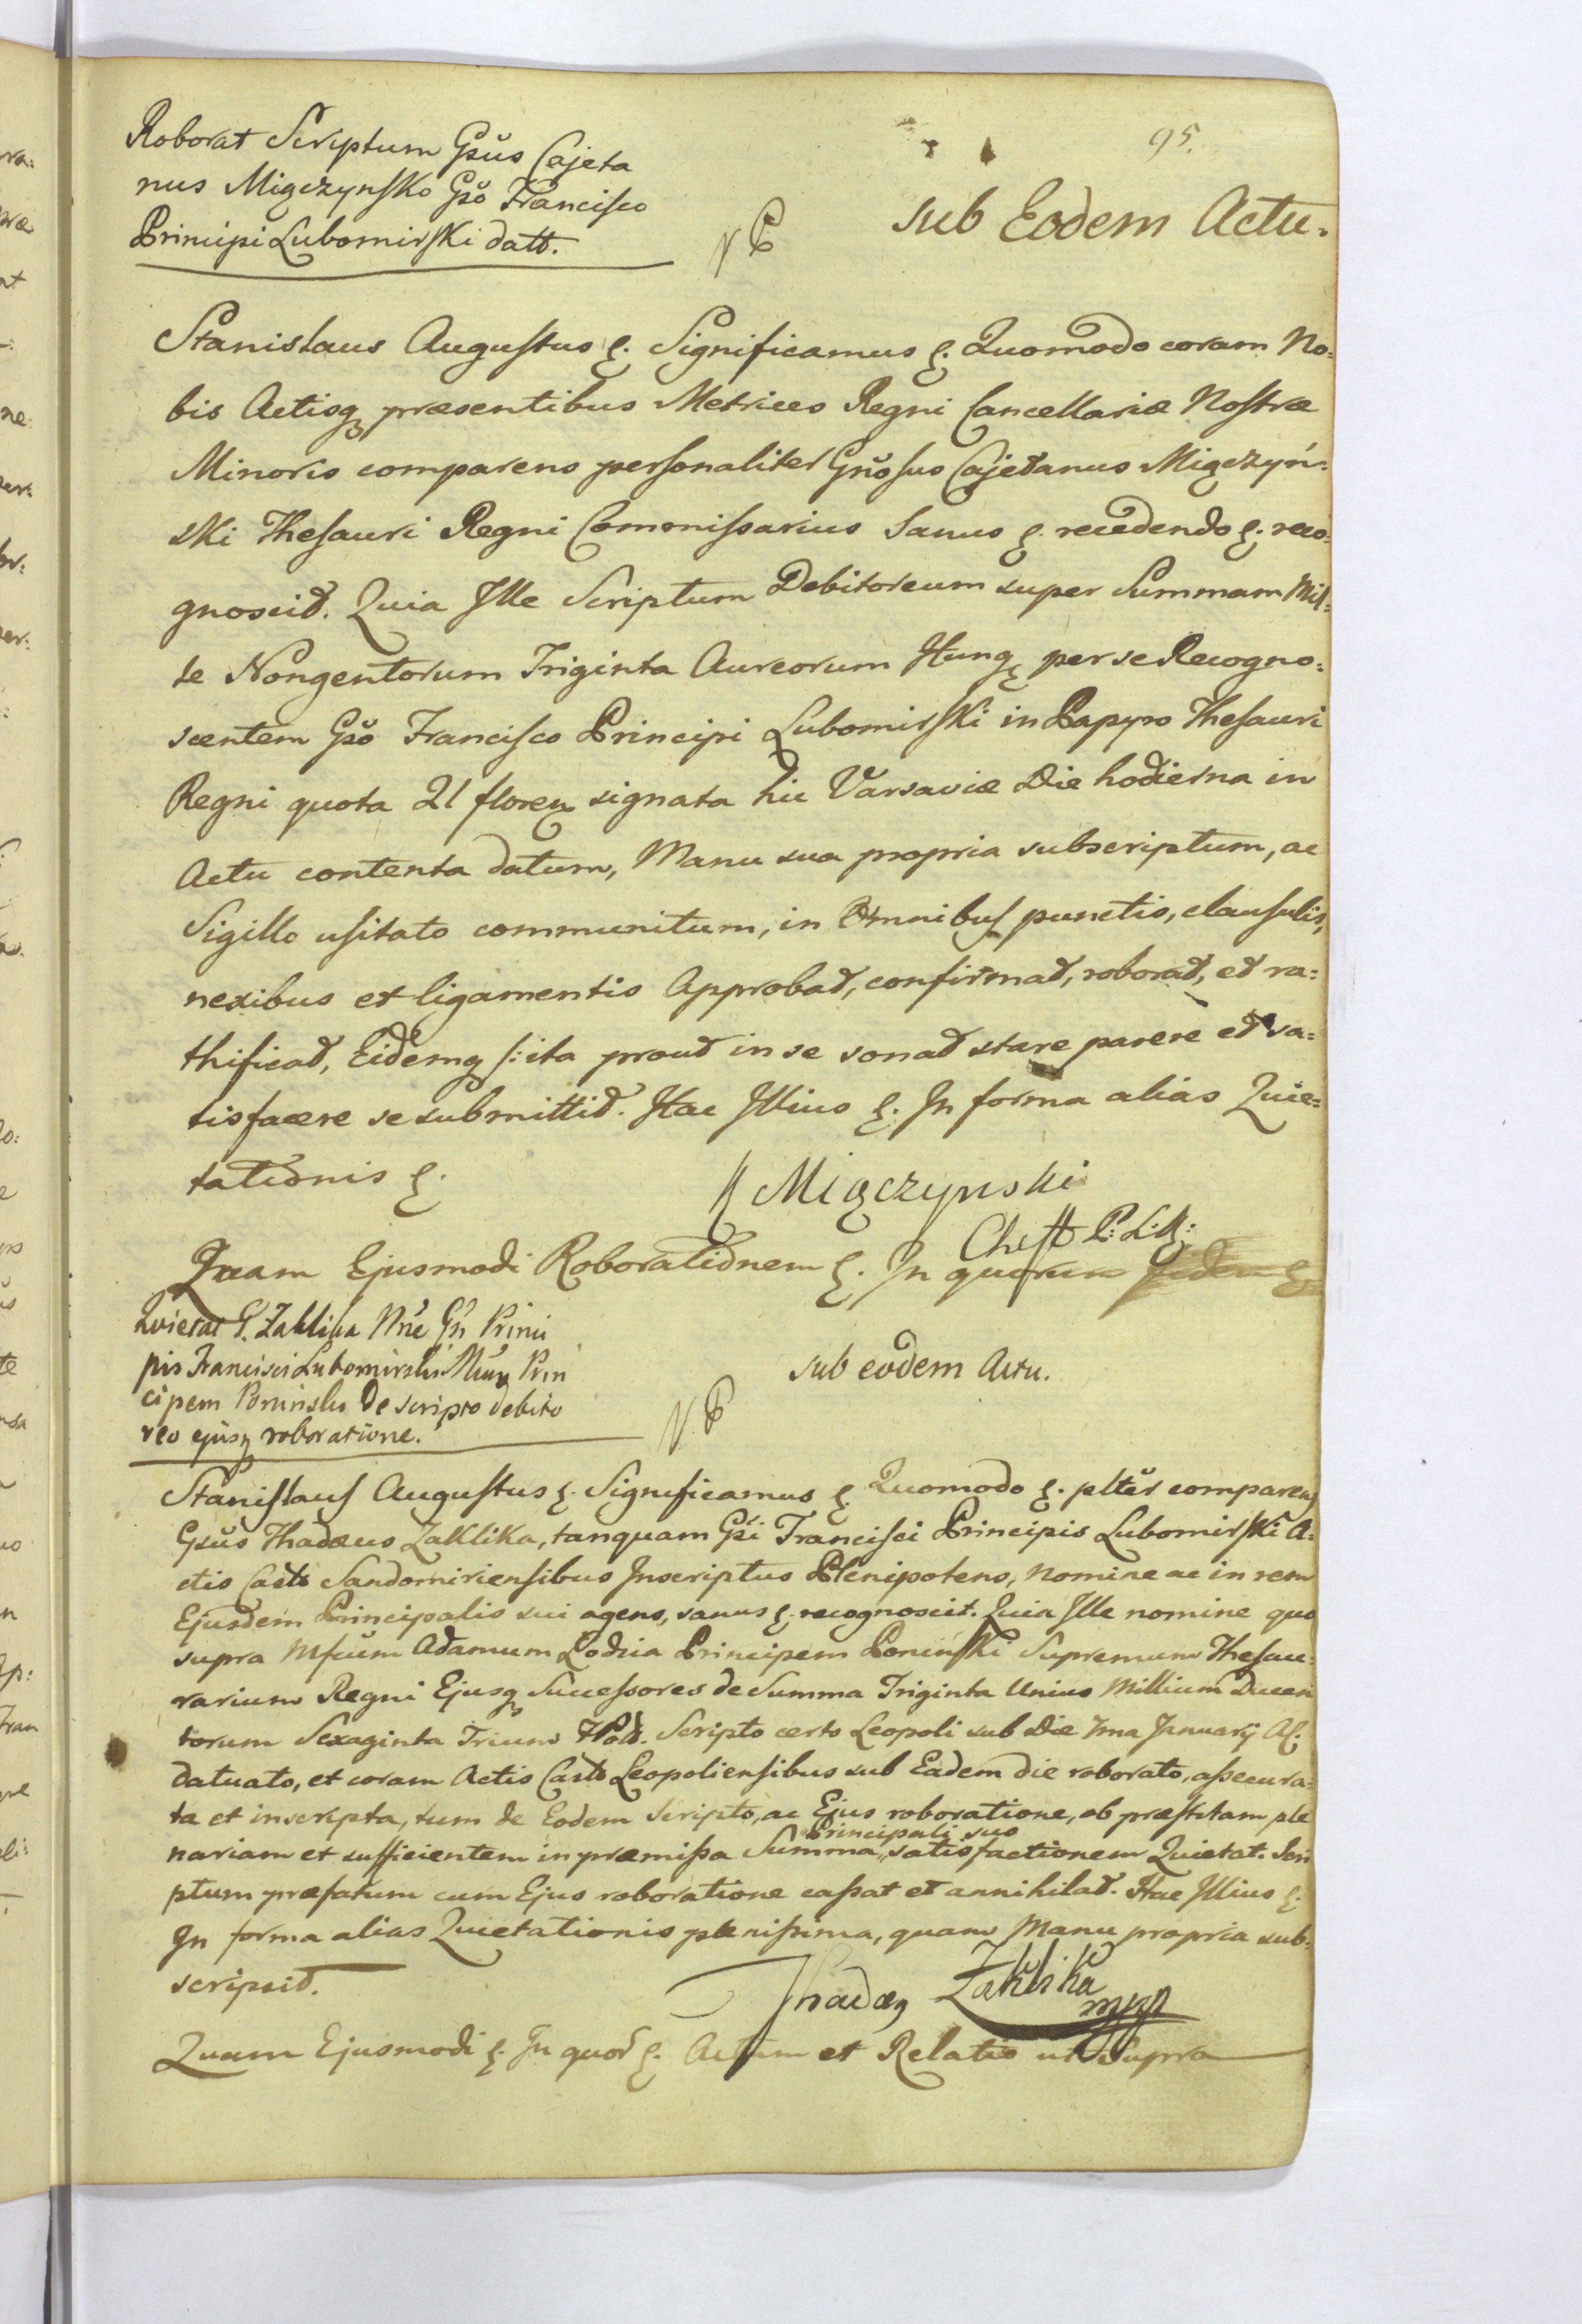 95.
Roborat Scriptum Gsus Cajeta
nus Miączynsko Gso Francisco
Principi Lubomirski datt.
sub Eodem Actu.
Stanislaus Augustus &. Significamus &. Quomodo coram No=
bis Actisq, præsentibus Metrices Regni Cancellariæ Nostræ
Minoris comparens personaliter Gnosus Cajetanus Miączyń=
ski Thesauri Regni Commissarius Sanus &. recedendo &. reco=
gnoscit. Quia Ille Scriptum Debitoreum super Summam Mil=
le Nongentorum Triginta Aureorum Hung, per se Recogno=
scentem Gso Francisco Principi Lubomirski in Papyro Thesauri
Regni quota 21 floren signata hic Varsaviæ Die hodierna in
Actu contenta datum, Manu sua propria subscriptum, ac
Sigillo usitato communitum, in Omnibus punctis, clausulis,
nexibus et ligamentis Approbat, confirmat, roborat, et ra=
thificat, Eidemq, /:ita prout in se sonat stare parere et sa=
tisfacere se submittit. Hac Illius &. In forma alias Quie=
tationis &.
K Miączynski
Quam Ejusmodi Roborationem &. In quorum fidem &
Quietat G. Zaklika Nne Gsi Princi
pis Francisci Lubomirski Mcum Prin
cipem Poninski de scripto debito
reo ejusq roboratione.
sub eodem Actu.
Stanislaus Augustus &. Significamus &. Quomodo &. plter comparens
Gsus Thadæus Zaklika, tanquam Gsi Francisci Principis Lubomirski A=
ctis Castr Sandomiriensibus Inscriptus Plenipotens, nomine ac in rem
Ejusdem Principalis sui agens, sanus &. recognoscit. Quia Ille nomine quo
supra Mfcum Adamum Łodzia Principem Poninski Supremum Thesau=
rarium Regni Ejusq, Successores de Summa Triginta Unius Millium Ducen
torum Sexaginta Trium fl Pol. Scripto certo Leopoli sub Die 7ma Januarij A&.
datuato, et coram Actis Castr Leopoliensibus sub Eadem die roborato, assecura=
ta et inscripta, tum de Eodem Scripto, ac Ejus roboratione, ob præstitam ple
nariam et sufficientem in præmissa Summa "Principali suo" satisfactionem Quietat. Scri
ptum præfatum cum Ejus roboratione cassat et annihilat. Hac Illius &.
In forma alias Quietationis plenissima, quam Manu propria sub=
scripsit.
Thadæq Zaklika
mpp
Quam Ejusmodi &. In quor &. Actum et Relatio ut Supra